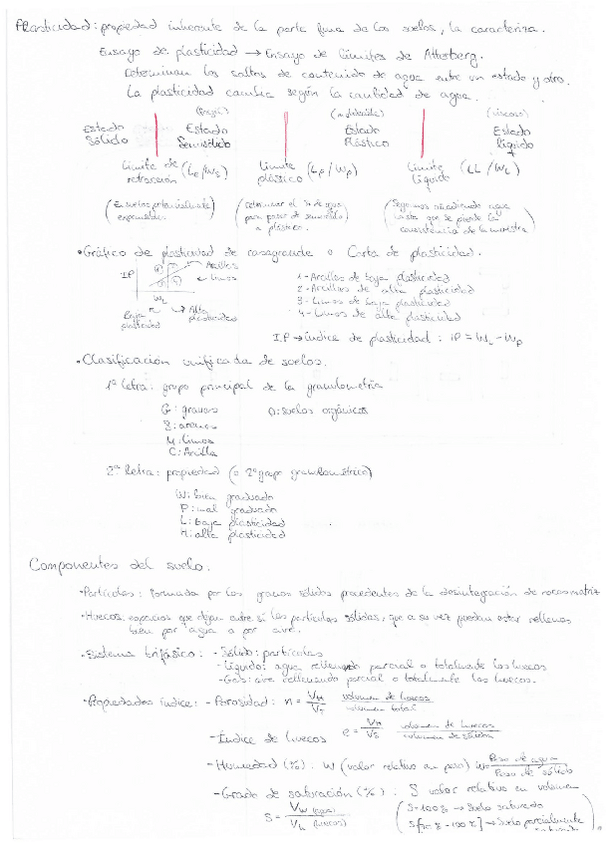 Plasticidad: propiedad inherente de la parte fina de los suelos, la caracteriza.
Ensayo de plasticidad → Ensayo de límites de Atterberg.
Determinan los saltos de contenido de agua entre un estado y otro.
La plasticidad cambia según la cantidad de agua.
(frágil) (moldeable) (viscoso)
Estado Sólido | Estado Semisólido | Estado Plástico | Estado Líquido
Límite de retracción (Ls/Ws) Límite plástico (Lp/Wp) Límite Líquido (LL/WL)
(En suelos potencialmente expansivos.)
(Determinar el % de agua para pasar de semisólido a plástico.)
(Seguimos añadiendo agua hasta que se pierde la consistencia de la muestra)
• Gráfico de plasticidad de casagrande o Carta de plasticidad.
IP
Arcillas
Limos
WL
Baja plasticidad
Alta plasticidad
1 - Arcillas de baja plasticidad
2 - Arcillas de alta plasticidad
3 - Limos de baja plasticidad
4 - Limos de alta plasticidad
I.P → índice de plasticidad: IP = WL - Wp
• Clasificación unificada de suelos.
1ª letra: grupo principal de la granulometría
G: gravas O: suelos orgánicos
S: arenas
M: limos
C: Arcilla
2ª letra: propiedad (o 2º grupo granulométrico)
W: bien graduado
P: mal graduado
L: baja plasticidad
H: alta plasticidad
Componentes del suelo.
• Partículas: formada por los granos sólidos procedentes de la desintegración de roca matriz
• Huecos: espacios que dejan entre sí las partículas sólidas, que a su vez pueden estar rellenos
bien por agua o por aire.
• Sistema trifásico: - Sólido: partículas
- Líquido: agua rellenando parcial o totalmente los huecos
- Gas: aire rellenando parcial o totalmente los huecos.
• Propiedades índice: - Porosidad: n = VH/VT volumen de huecos/volumen total
- Índice de huecos e = VH/VS volumen de huecos/volumen de sólidos
- Humedad (%): W (valor relativo en peso) W = Peso de agua/Peso de sólido
- Grado de saturación (%): S valor relativo en volumen
S = VW (agua)/VH (huecos)
S=100% → Suelo saturado
→ Suelo parcialmente